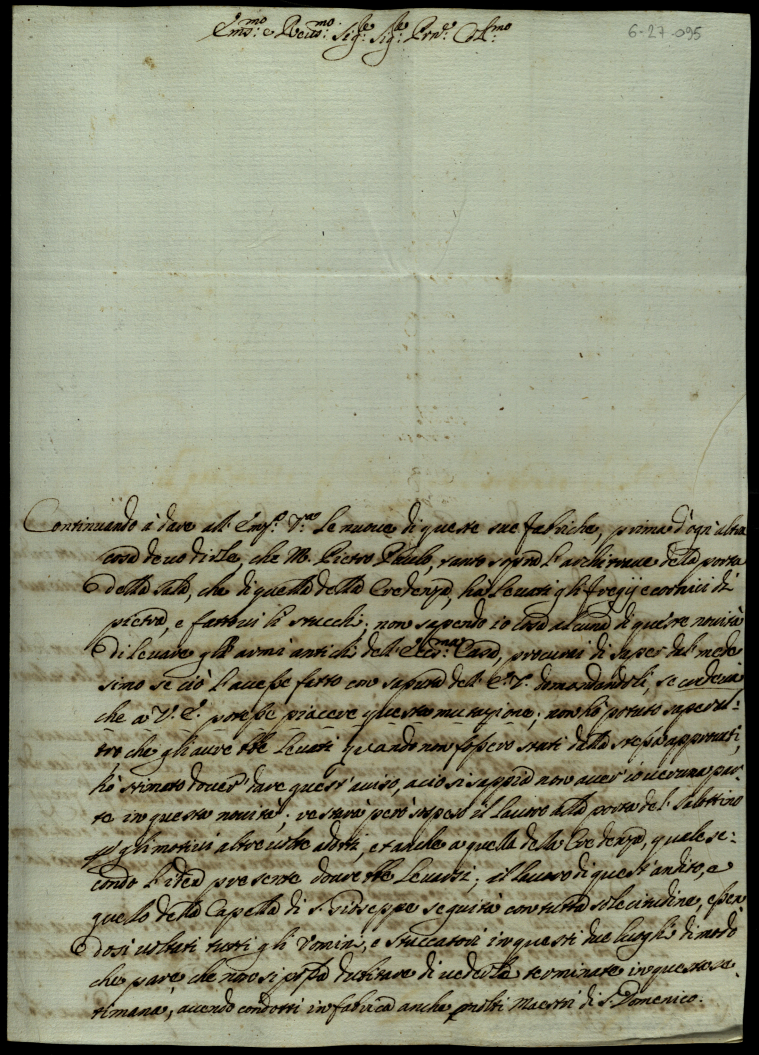 Em.mo e Reu.mo Sig.re Sig.re Pron.e Col.mo
6-27-095
Continuando à dare all'Em.za V.ra le nuove di queste sue fabriche, prima d'ogn'altra
cosa deuo dirle, che M. Pietro Paulo, tanto sopra l'architraue della porta
della sala, che di quella della Credenza, ha leuati gli fregij e cornici di
pietra, e fattoui li stucchi; non sapendo io cosa alcuna di queste nouità
di leuare gli armi antichi dell'Ecc.ma Casa, procurai di saper dal mede
simo se ciò l'auesse fatto con saputa dell'E. V. domandandoli, se credeua
che a V. E. potesse piacere questa mutazione; non hò potuto saper al=
tro che gli aurebbe leuati quando non fossero stati dalla stessa approuati,
hò stimato douer dare quest'auiso, acio si sappia non auer io ueruna par=
te in questa nouità; restarà però sospeso il lauoro alla porta del salottino
p gli motiui altre uolte adotti, et anche a quella della Credenza, quale se=
condo l'idea presente dourebbe leuarsi; il lauoro di quest'andito, e
quello della Capella di S. Giuseppe seguita con tutta solecitudine, essen
dosi uoltati tutti gli Uomini, e stuccatori in questi due luoghi di modo
che pare che non si possa dubitare di uederla terminate in questa se=
timana, auendo condotti in fabrica anche molti Maestri di S. Domenico.